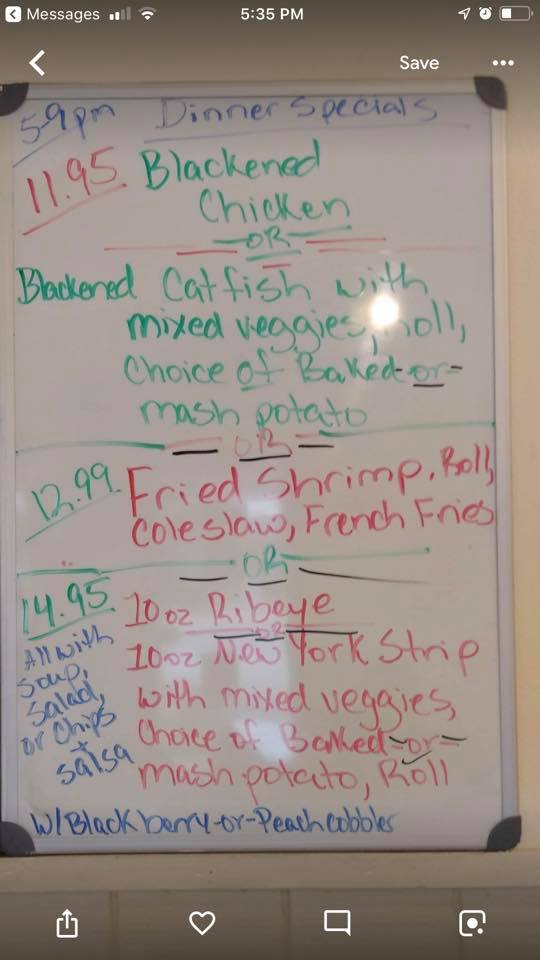 Messages 5:35 PM
Save
5-9pm Dinner Specials
11.95 Blackened
Chicken
OR
Blackened Catfish with
mixed veggies, roll,
Choice of Baked-or-
mash potato
OR
12.99 Fried Shrimp, Roll,
Coleslaw, French Fries
OR
14.95 10oz Ribeye
OR
10oz New York Strip
with mixed veggies,
Choice of Baked-or-
mash potato, Roll
All with
Soup,
Salad,
or Chips
+
salsa
W/Blackberry-or-Peach cobbles